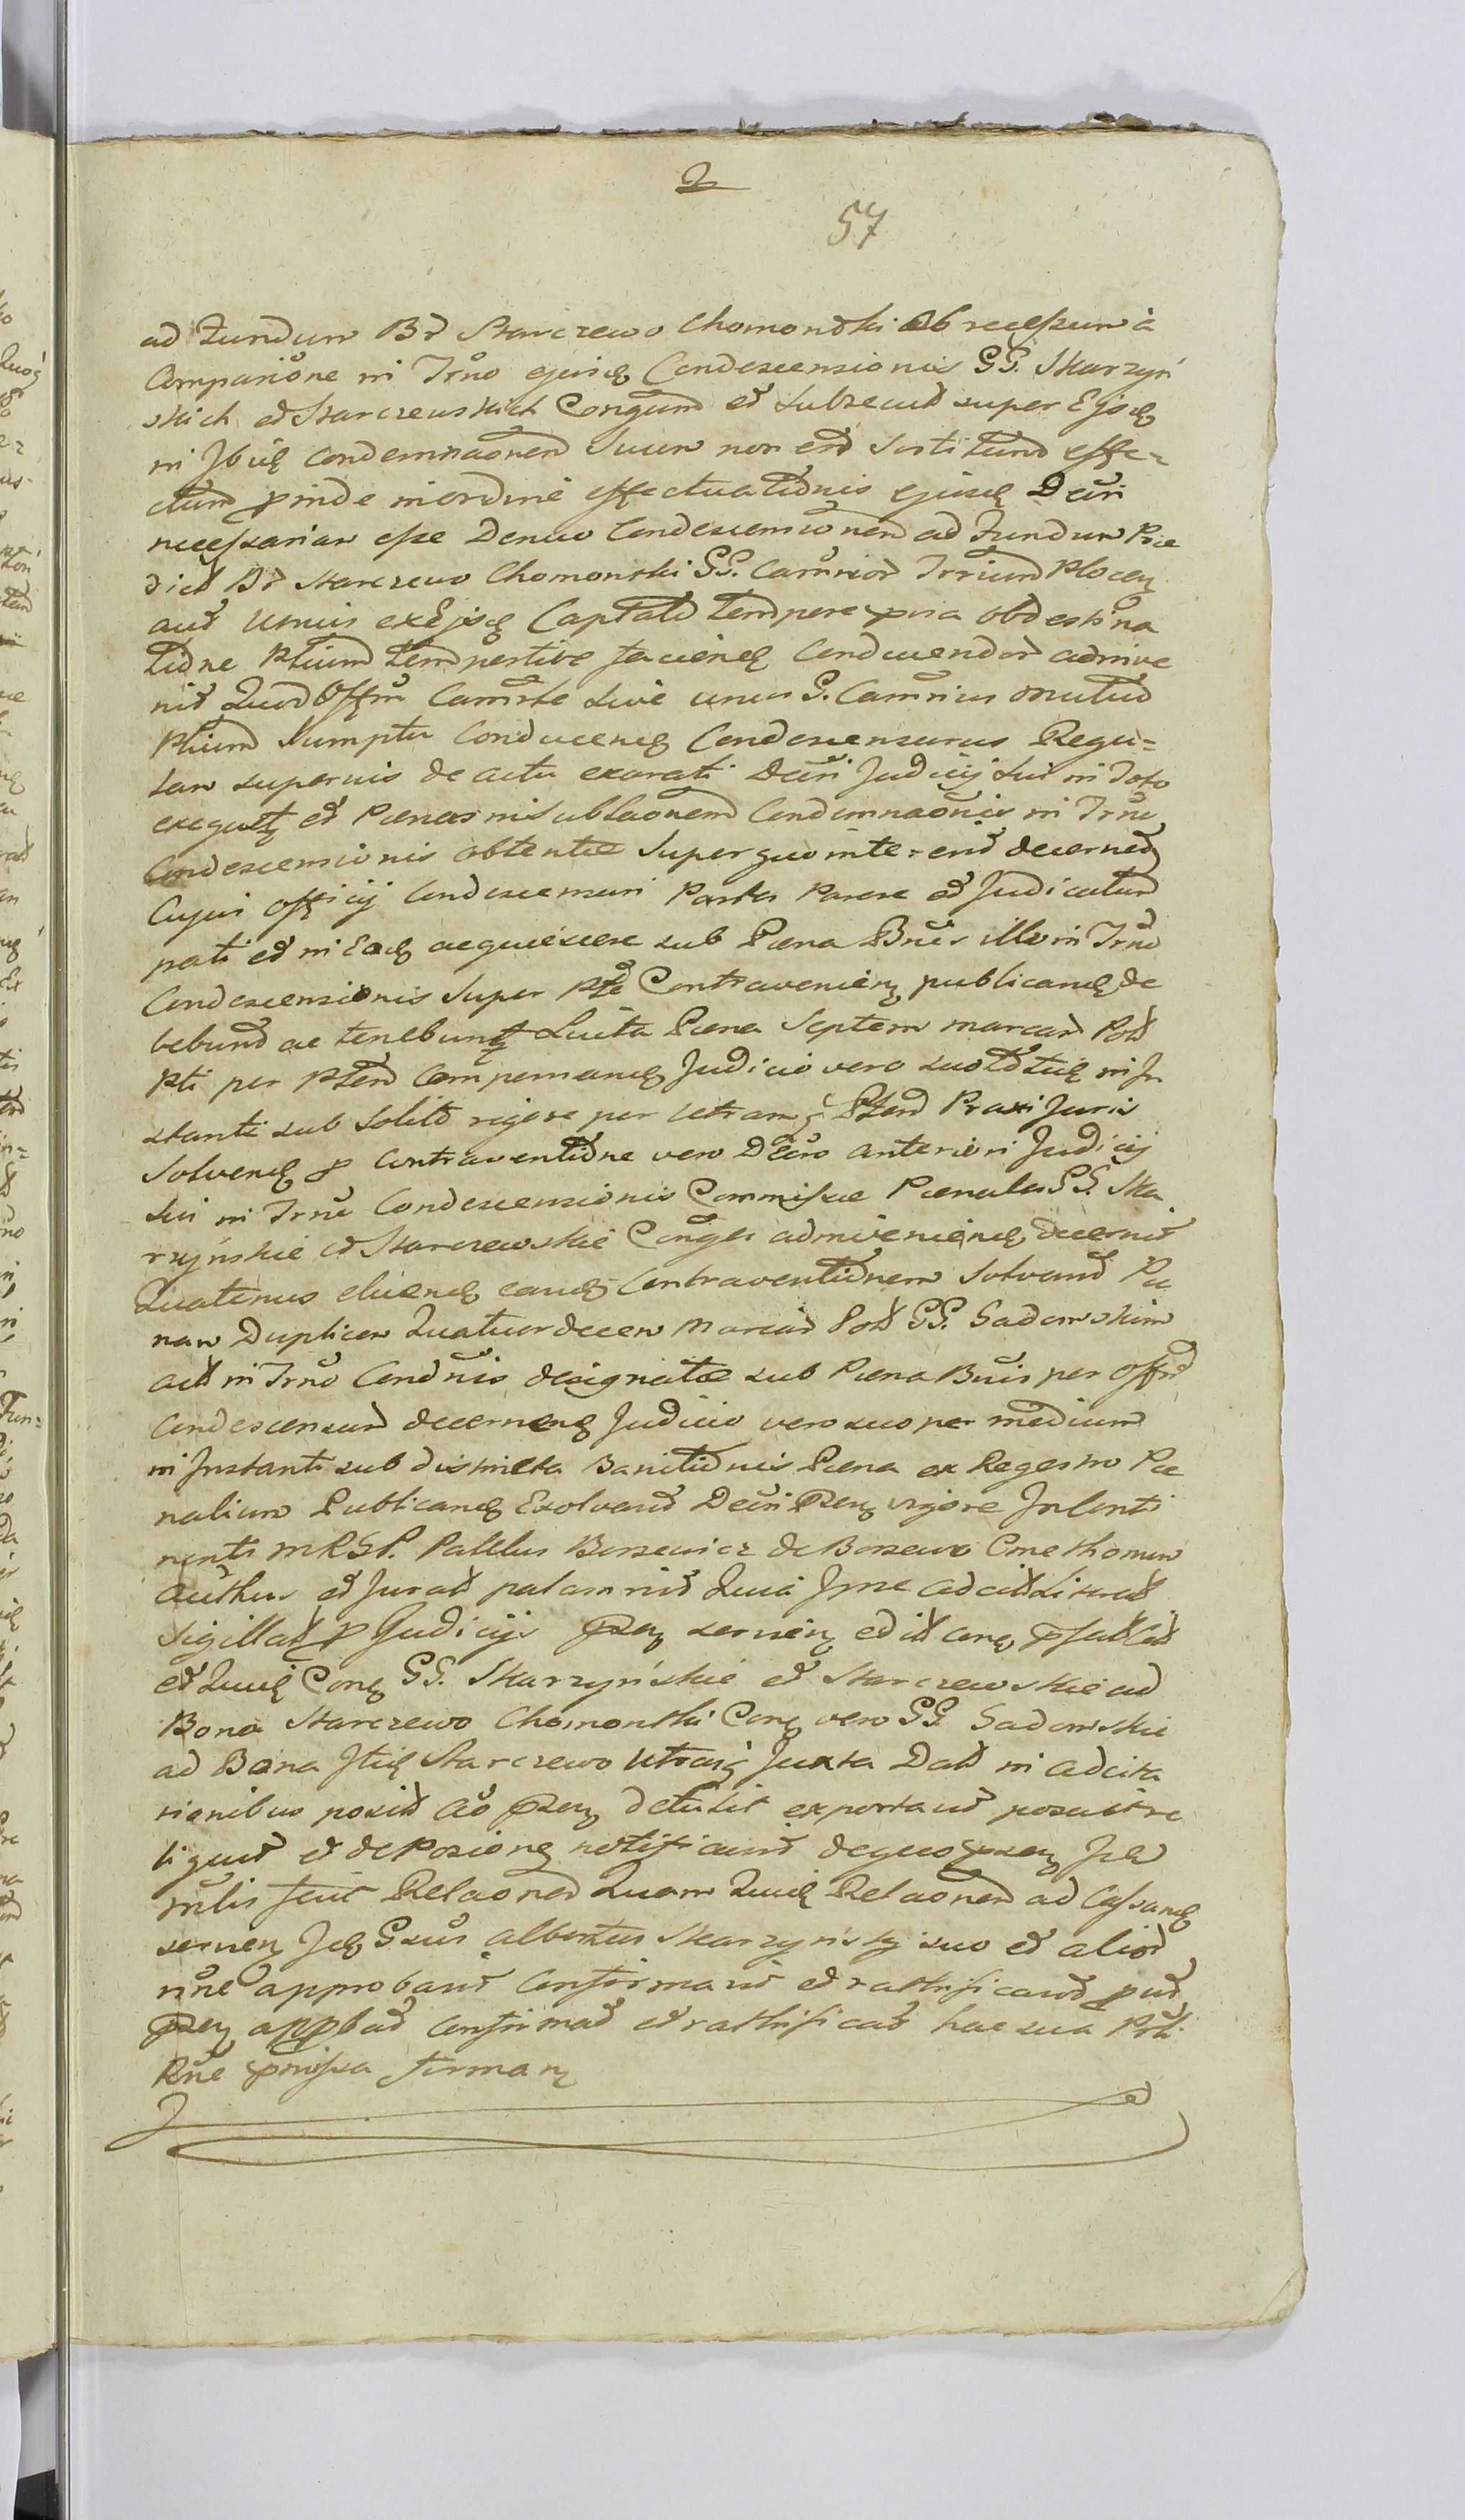 2
57
ad Fundum Br Starczewo Chomontki Ob recessum à
Comparione in Trno ejusq Condescensionis GG. Skarzyń
skich et Starczewskich Congum et Subsecut super Ejsq
in Ibiq Condemnaonem Suum non est Sortitum effe=
ctum pinde in ordine effectuationis ejusq Decri
necessariam esse Denuo Condescensionem ad Fundum Prae
dict Br Starczewo Chomontki GG. Camrior Trrium Plocen
aut Unius ex Ejsq Captato tempore
tione Ptium tempestive faciend Conducendor adinve
nit Quod Offm Camrle sive unus G. Camrius mutuo
Ptium Sumptu Conducend Condescensurus Regu=
lam superius de actu exarati Decri Judicij Sui in Toto
exequetr et Paenas in Sublaonem Condemnaonis in Trno
Condescensionis obtentae Super quo interend decernet
Cujus Officij Condescensuri Partes Parere et Judicatum
pati et in Eoq acquiescere sub Paena Bnis illo in Trno
Condescensionis Super Pte Contravenien publicand de
bebunt ac tenebuntr Luita Paena Septem marcar Pol
Pti per Ptem Compernand Judicio vero suo in In
stanti sub Solito rigore per utramq Ptem Praxi Juris
Solvend p Contraventione vero Decro anteriori Judicij
Sui in Trno Condescensionis Commissae Paenales GG. Ska
rzyńskie et Starczewskie Conges adinveniend decernit
Quatenus eluend eand Contraventionem Solvant Pae
nam Duplicem Quatuordecem Marcar Pol GG. Sadowskim
act in Trno Condnis designatae sub Paena Bnis per Offm
Condescensur decernend Judicio vero suo per medium
in Instanti sub districta Banitionis Paena ex Regestro Pae
nalium Publicand Exolvant Decri Psen vigore Inlenti
nenti MRSP. Pallus Borzewicz de Borzewo Cmethonum
Authus et Jurat palam Quia Ipse adcit Literat
Sigillat p Judicijs Psen servien edit conq
et Quiq Conq GG. Skarzyńskie et Starczewskie ad
Bona Starczewo Chomontki Conq vero GG Sadowskie
ad Bona Itiq Starczewo Utrasq Juxta Dat in adcita
tionibus posit ao Psen detulit exportavit posuit re
liquit et de Posione notificavit de quo psen
mlis fecit Relaonem Quam Quiq Relaonem ad Cassand
servien Gsus Albertus Skarzyński suo et alior
nne approbavit Confirmavit et rathificavit put
Psen appbat Confirmat et rathificat hac sua Prti
Rne pmissa firman